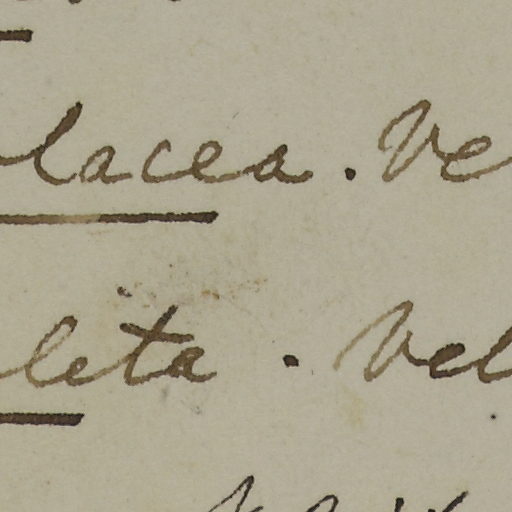 lacea. Ve
leta. Vel